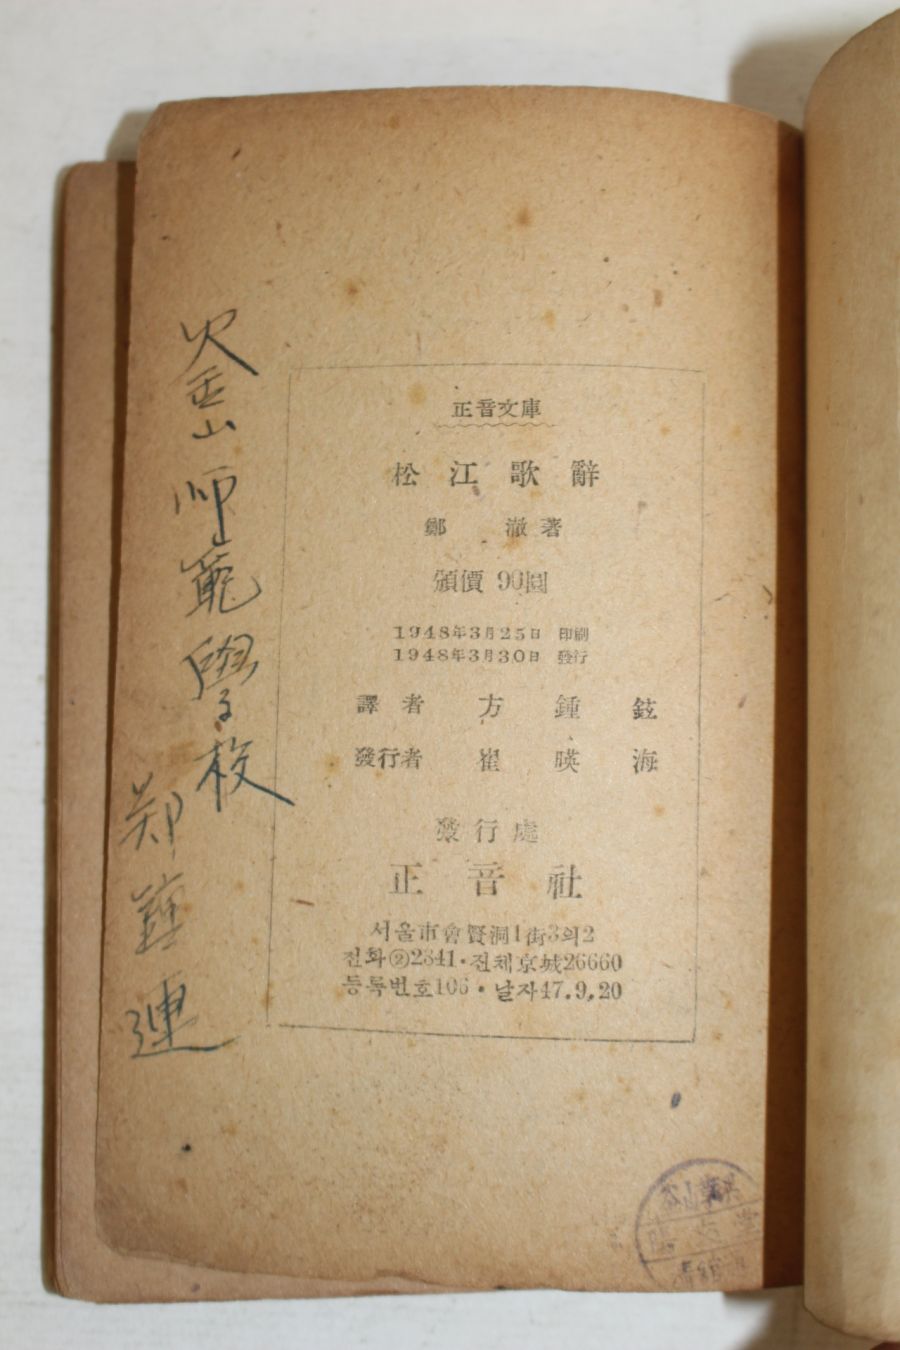 正音文庫
松江歌辭
鄭 澈著
頒價 90圓
1948年3月25日 印刷
1948年3月30日 發行
譯者 方鍾鉉
發行者 崔暎海
發行處
正音社
서울市會賢洞1街3의2
전화②2641·진체京城26660
등록번호106·날자47.9.20
釜山師範學校
鄭鍾連